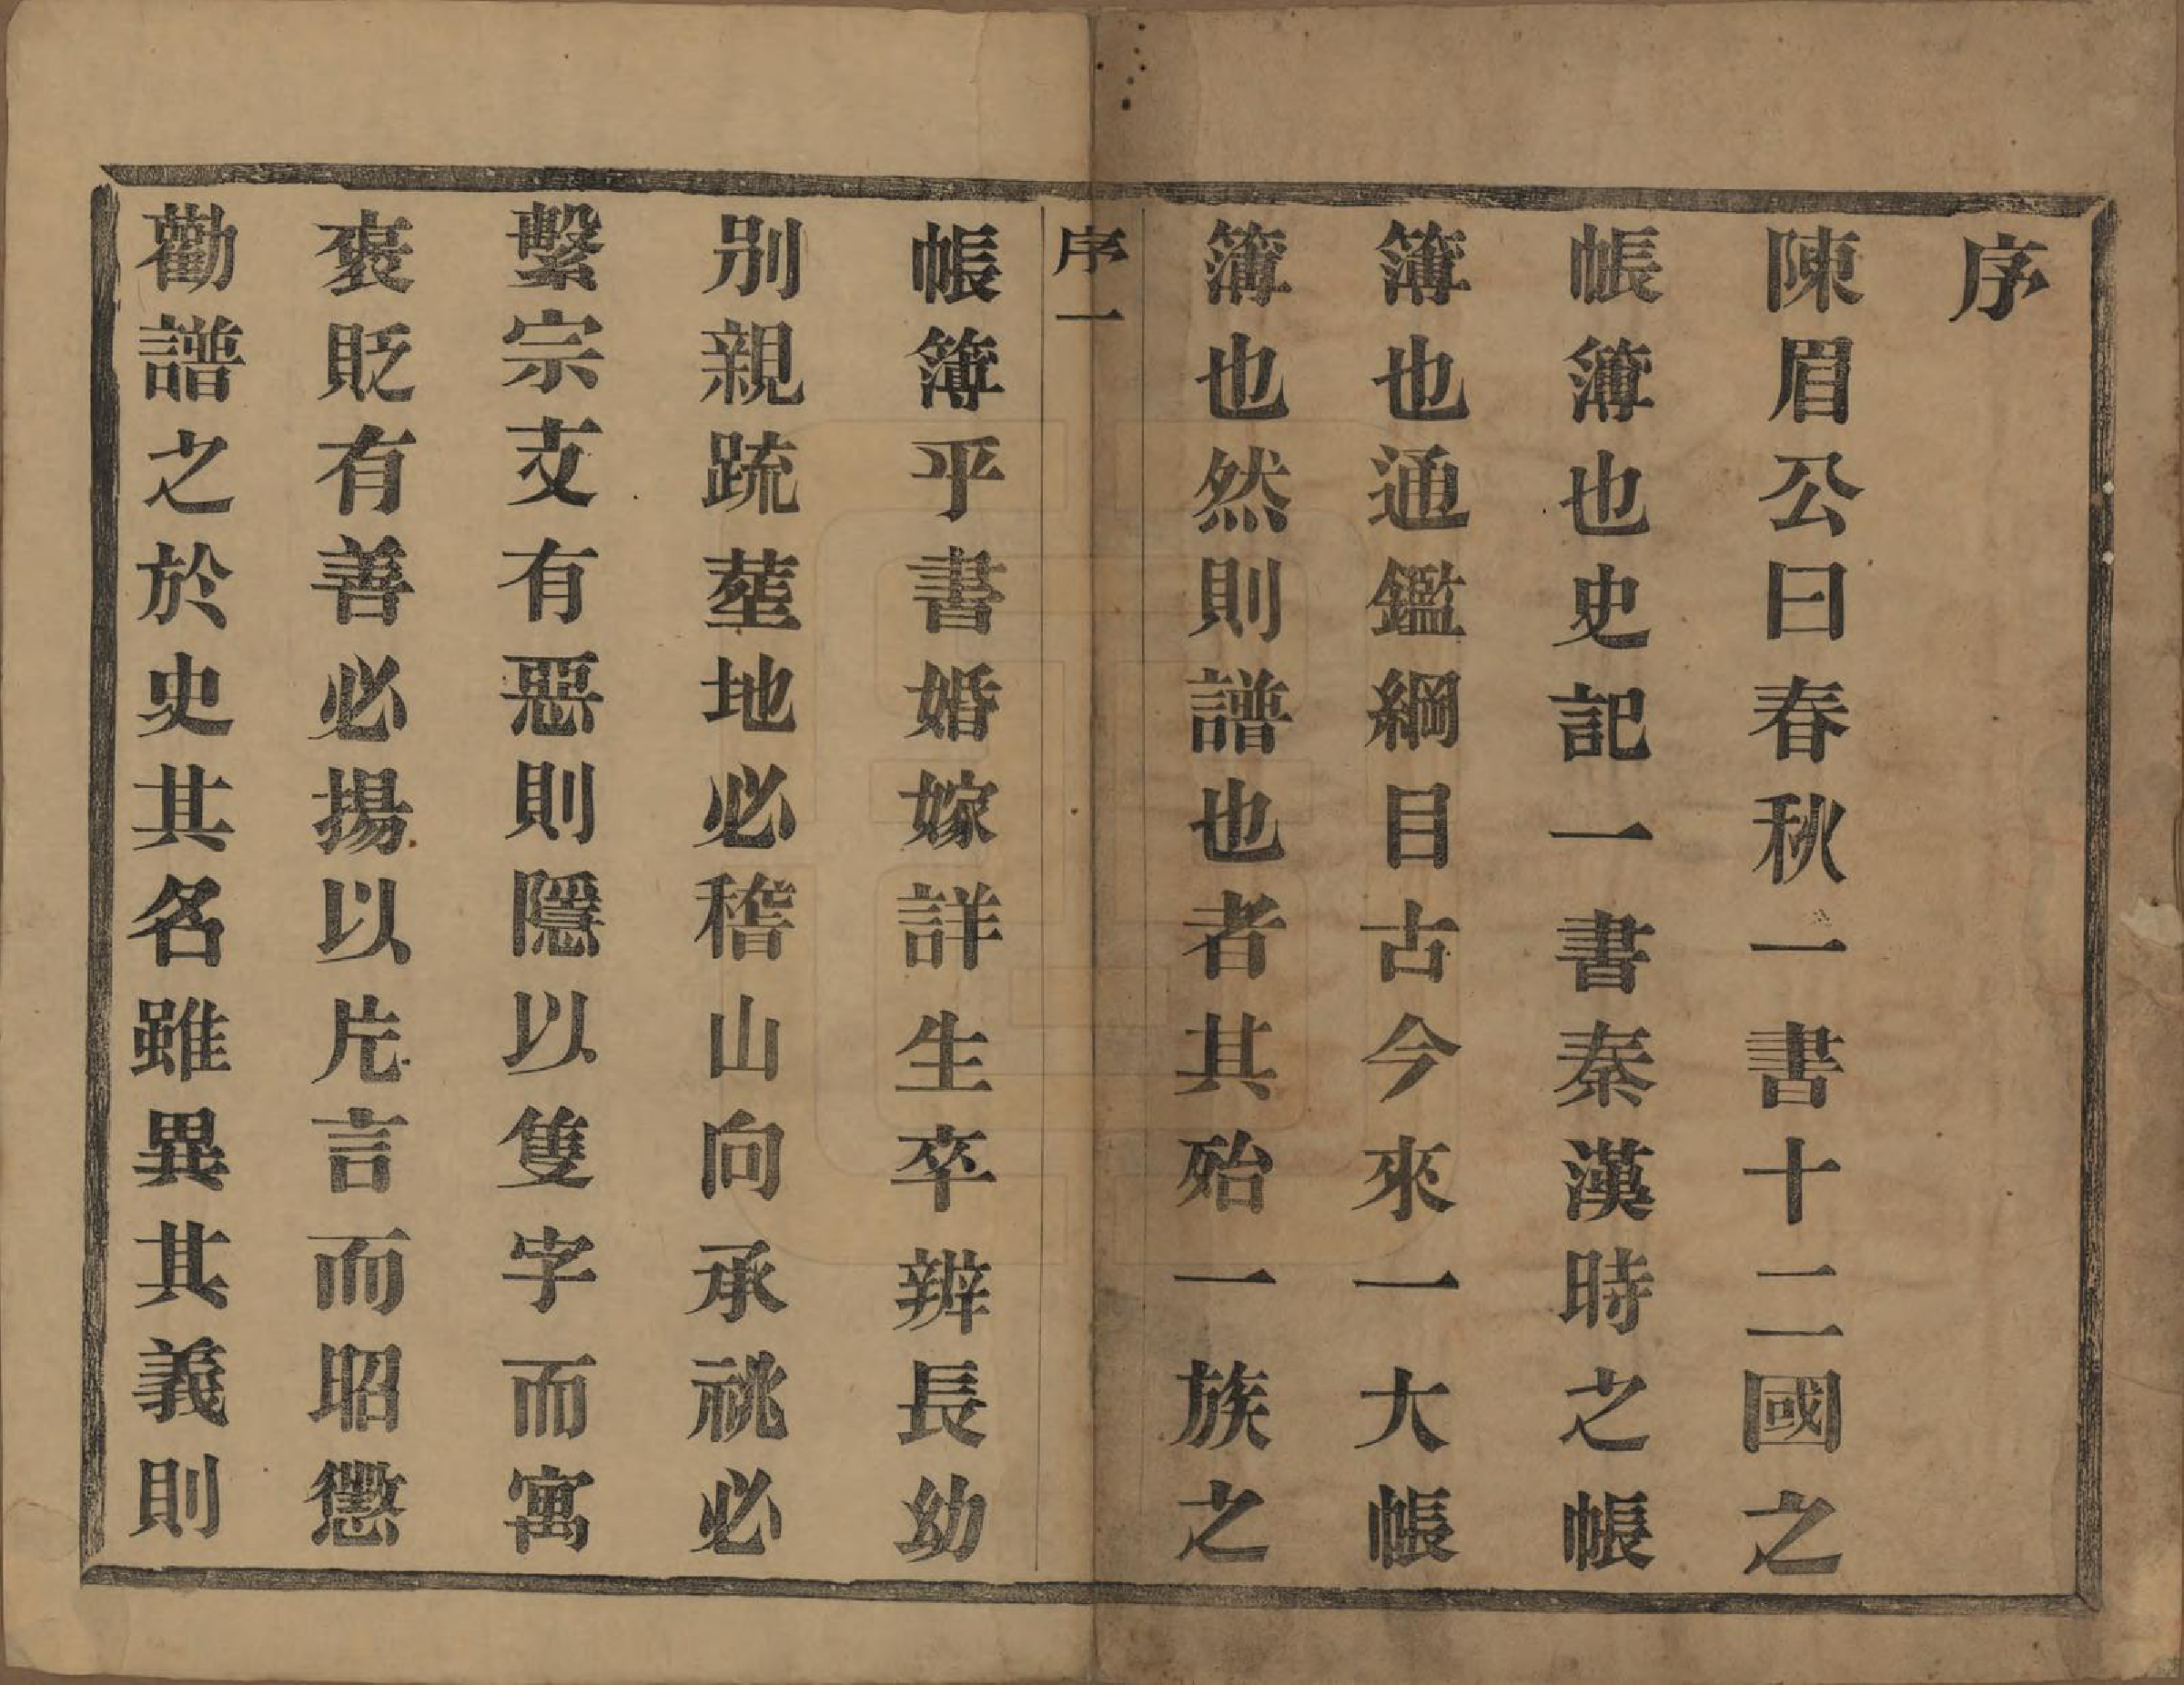 序
陳眉公曰春秋一書十二國之
帳簿也史記一書秦漢時之帳
簿也通鑑綱目古今來一大帳
簿也然則譜也者其殆一族之
序一
帳簿乎書婚嫁詳生卒辨長幼
別親疏塟地必稽山向承祧必
繫宗支有惡則隱以隻字而寓
褒貶有善必揚以片言而昭懲
勸譜之於史其名雖異其義則